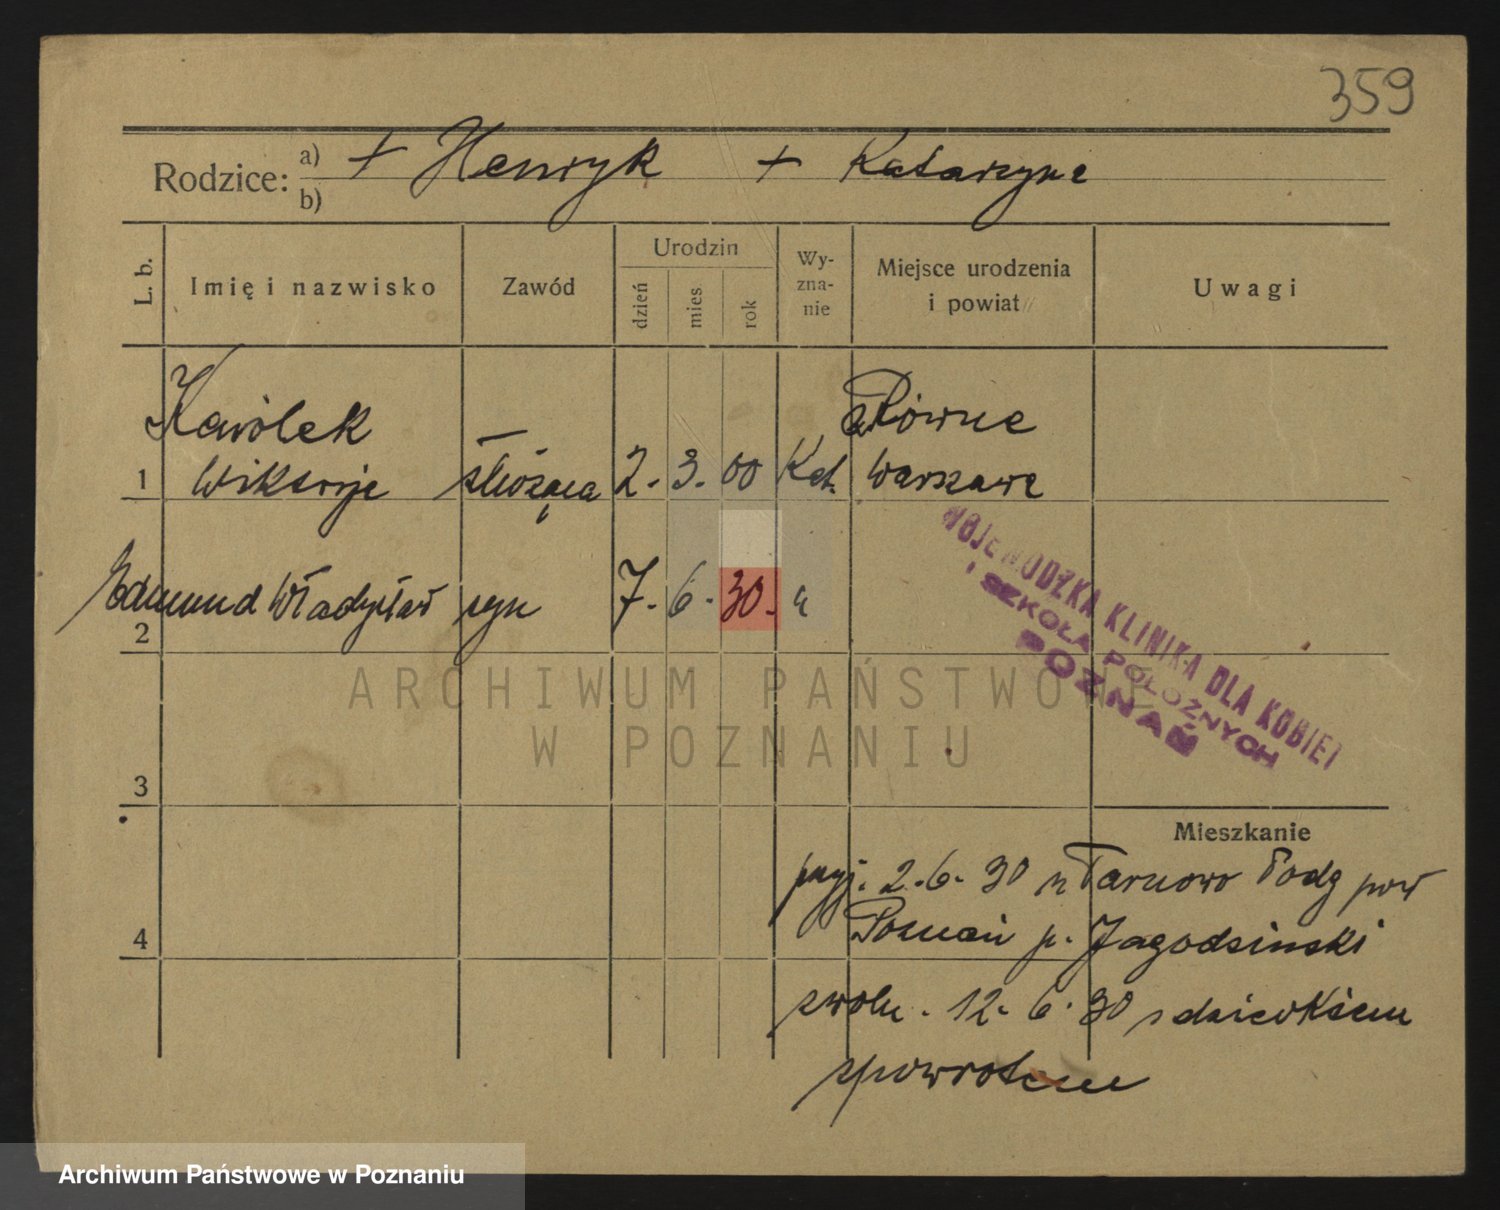 359
Rodzice: a) + Henryk + Katarzyna
b)
L. b. Imię i nazwisko Zawód Urodzin Wy-zna-nie Miejsce urodzenia i powiat Uwagi
dzień mies rok
Karólek Równe
1 Wiktorja służąca 2. 3. 00 Kat. Warszawa
Edmund Władysław syn 7. 6. 30.
2
WOJEWÓDZKA KLINIKA DLA KOBIET
I SZKOŁA POŁOŻNYCH
POZNAŃ
ARCHIWUM PAŃSTWOWE
W POZNANIU
3
Mieszkanie
przyj. 2.6.30 z Tarnowo Podg pow
4 Poznań p. Jagodzinski
zwoln. 12.6.30 z dzieckiem
spowrotem
Archiwum Państwowe w Poznaniu